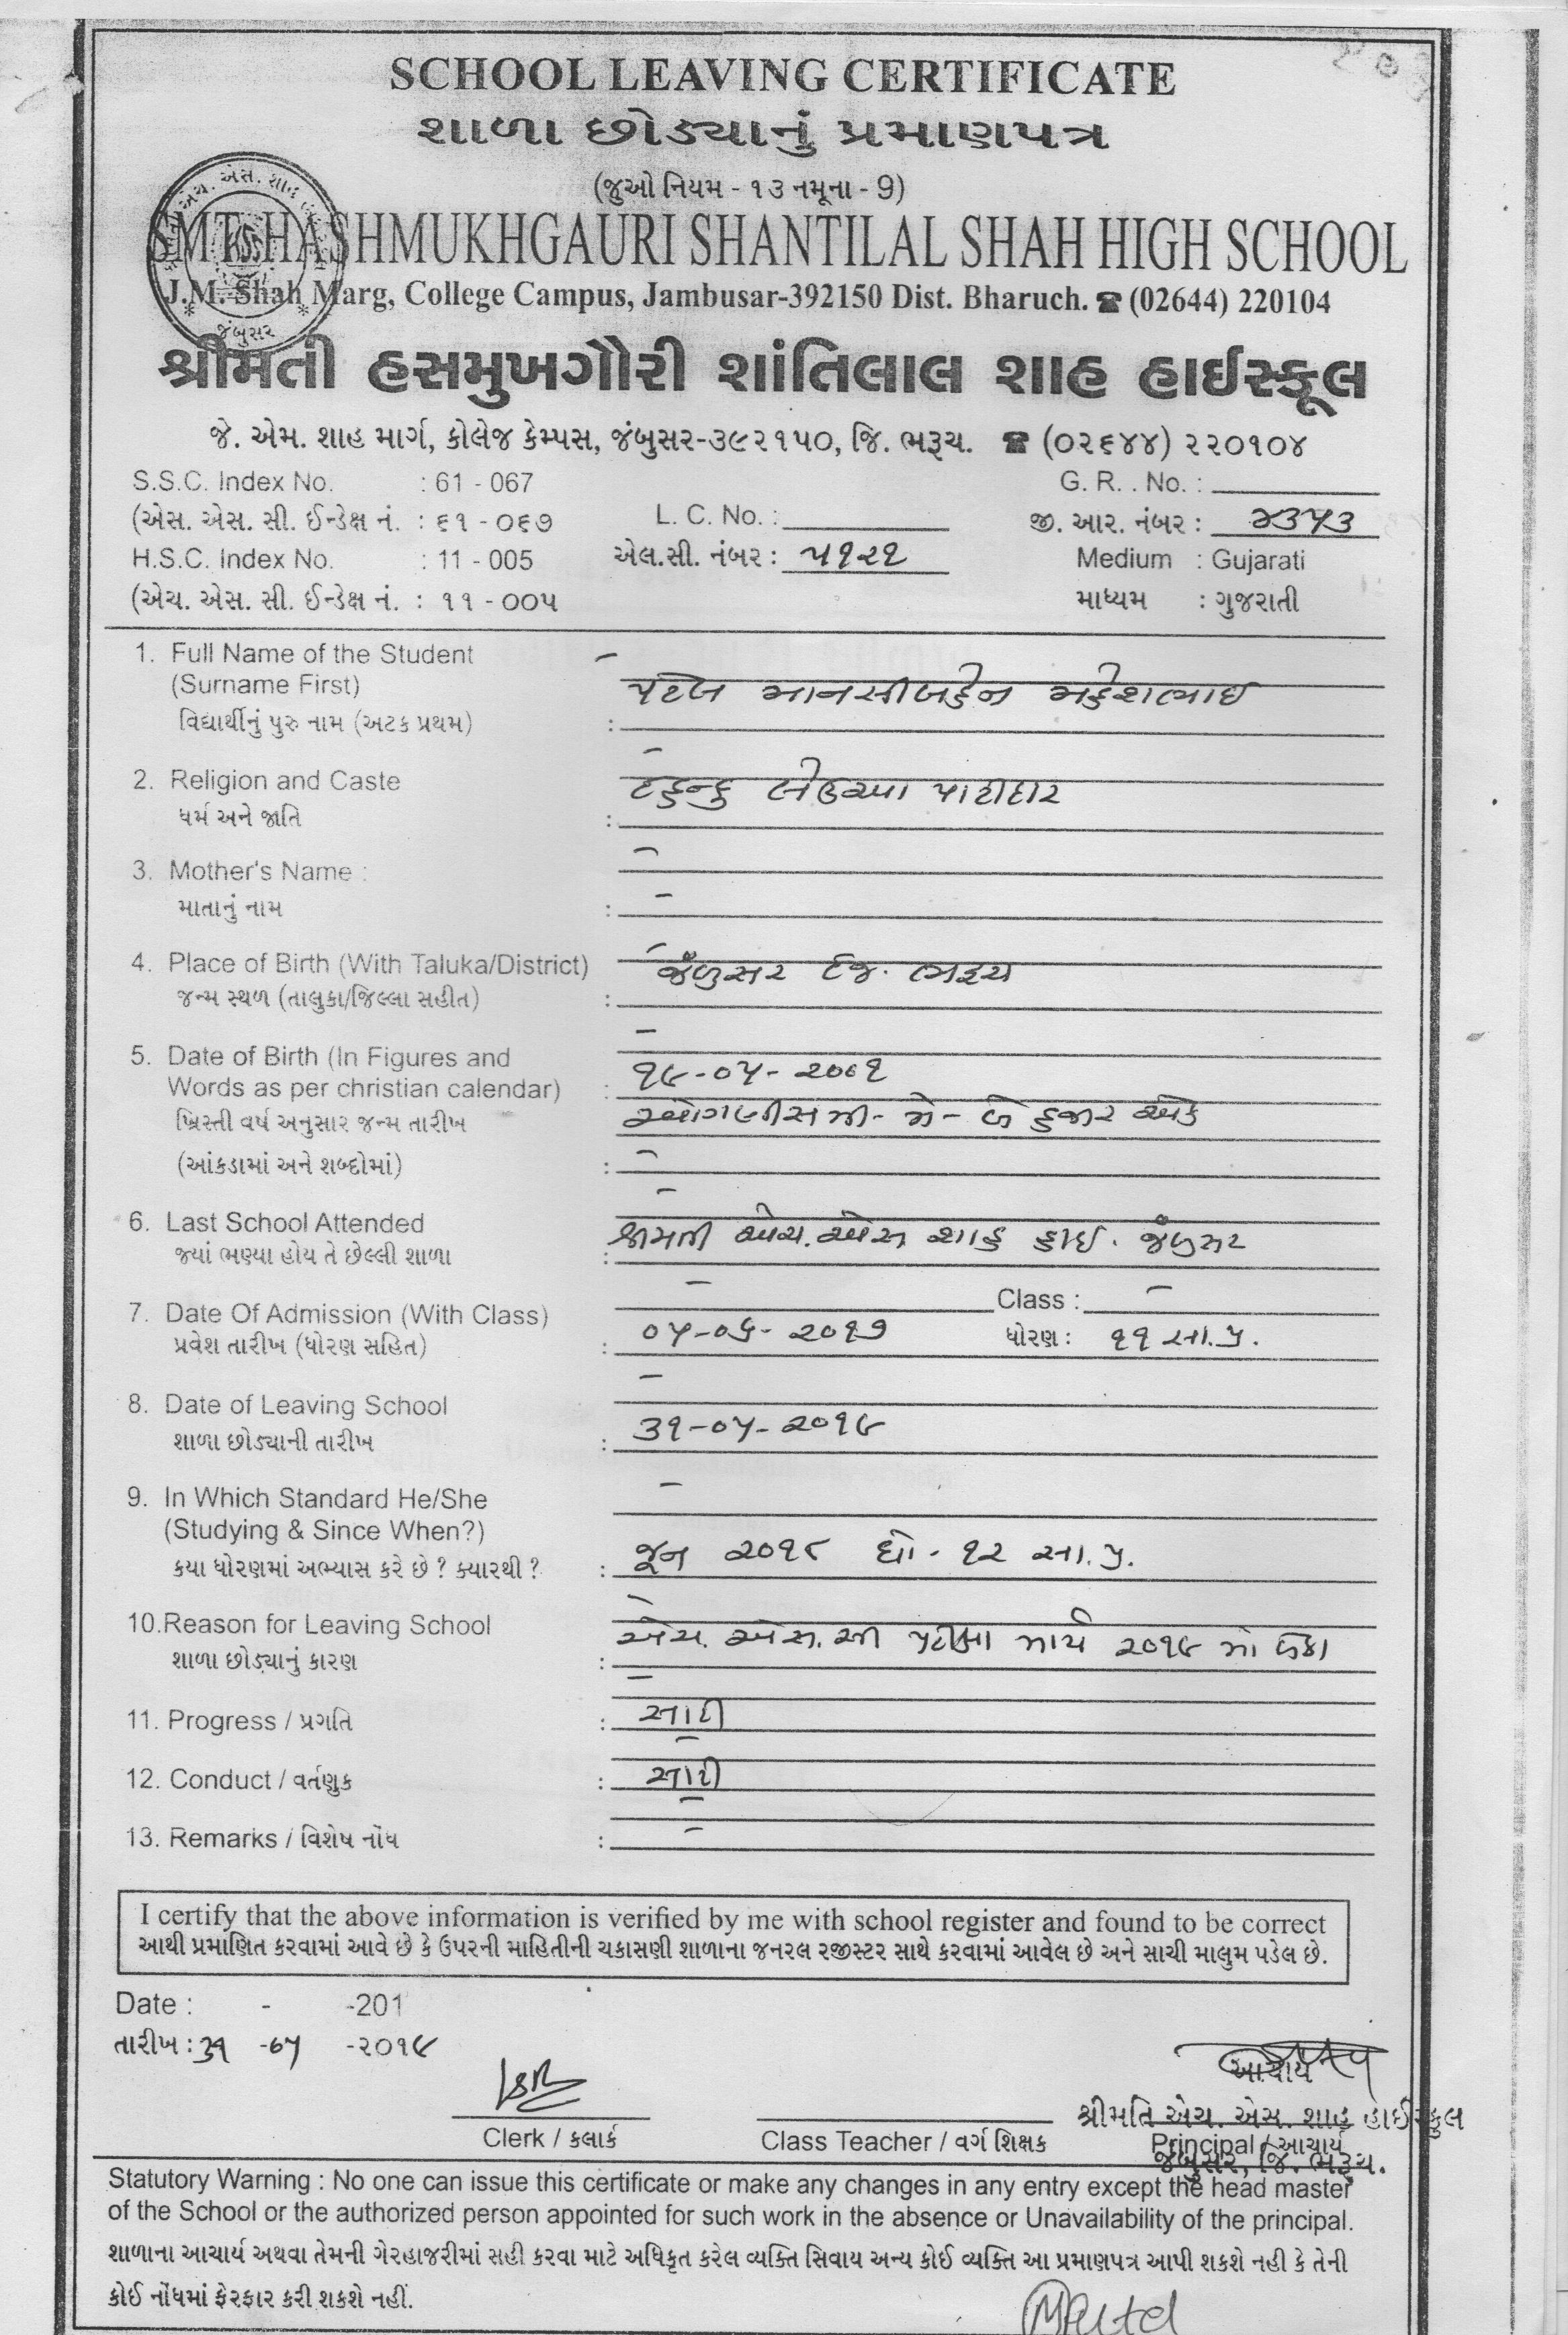 SCHOOL LEAVING CERTIFICATE
શાળા છોડ્યાનું પ્રમાણપત્ર
(જુઓ નિયમ - ૧૩ નમૂના - 9)
SMT. HASHMUKHGAURI SHANTILAL SHAH HIGH SCHOOL
J.M. Shah Marg, College Campus, Jambusar-392150 Dist. Bharuch. ☎ (02644) 220104
શ્રીમતી હસમુખગૌરી શાંતિલાલ શાહ હાઈસ્કૂલ
જે. એમ. શાહ માર્ગ, કોલેજ કેમ્પસ, જંબુસર-૩૯૨૧૫૦, જિ. ભરૂચ. ☎ (૦૨૬૪૪) ૨૨૦૧૦૪
S.S.C. Index No. : 61 - 067 G. R. . No. :
(એસ. એસ. સી. ઈન્ડેક્ષ નં. : ૬૧ - ૦૬૭ L. C. No. : જી. આર. નંબર : ૪૩૫૩
H.S.C. Index No. : 11 - 005 એલ.સી. નંબર : ૫૧૨૧ Medium : Gujarati
(એચ. એસ. સી. ઈન્ડેક્ષ નં. : ૧૧ - ૦૦૫ માધ્યમ : ગુજરાતી
1. Full Name of the Student
(Surname First) પટેલ માનસીબહેન મહેશભાઇ
વિદ્યાર્થીનું પુરુ નામ (અટક પ્રથમ) :
2. Religion and Caste હિન્દુ લેઉઆ પાટીદાર
ધર્મ અને જાતિ :
3. Mother's Name : -
માતાનું નામ : -
4. Place of Birth (With Taluka/District) જંબુસર જિ. ભરૂચ
જન્મ સ્થળ (તાલુકા/જિલ્લા સહીત) :
5. Date of Birth (In Figures and ૧૯-૦૫-૨૦૦૧
Words as per christian calendar) :
ખ્રિસ્તી વર્ષ અનુસાર જન્મ તારીખ ઓગણીસમી- મે- બે હજાર એક
(આંકડામાં અને શબ્દોમાં) : -
6. Last School Attended શ્રીમતી એચ. એસ શાહ હાઈ. જંબુસર
જ્યાં ભણ્યા હોય તે છેલ્લી શાળા :
7. Date Of Admission (With Class) - Class : -
પ્રવેશ તારીખ (ધોરણ સહિત) : ૦૫-૦૬-૨૦૧૭ ધોરણ : ૧૧ સા.પ્ર.
8. Date of Leaving School -
શાળા છોડ્યાની તારીખ : ૩૧-૦૫-૨૦૧૯
9. In Which Standard He/She -
(Studying & Since When?)
કયા ધોરણમાં અભ્યાસ કરે છે ? ક્યારથી ? : જૂન ૨૦૧૮ ધો - ૧૨ સા.પ્ર.
10.Reason for Leaving School એચ. એસ. સી પરીક્ષા માર્ચ ૨૦૧૯ માં
શાળા છોડ્યાનું કારણ :
11. Progress / પ્રગતિ : સારી
12. Conduct / વર્તણુક : સારી
13. Remarks / વિશેષ નોંધ : -
I certify that the above information is verified by me with school register and found to be correct
આથી પ્રમાણિત કરવામાં આવે છે કે ઉપરની માહિતીની ચકાસણી શાળાના જનરલ રજીસ્ટર સાથે કરવામાં આવેલ છે અને સાચી માલુમ પડેલ છે.
Date : - -201
તારીખ : ૩૧ -૦૫ -૨૦૧૯
આચાર્ય
શ્રીમતિ એચ. એસ. શાહ હાઈસ્કુલ
Clerk / કલાર્ક Class Teacher / વર્ગ શિક્ષક Principal / આચાર્ય
જંબુસર, જિ. ભરૂચ.
Statutory Warning : No one can issue this certificate or make any changes in any entry except the head master
of the School or the authorized person appointed for such work in the absence or Unavailability of the principal.
શાળાના આચાર્ય અથવા તેમની ગેરહાજરીમાં સહી કરવા માટે અધિકૃત કરેલ વ્યક્તિ સિવાય અન્ય કોઈ વ્યક્તિ આ પ્રમાણપત્ર આપી શકશે નહી કે તેની
કોઈ નોંધમાં ફેરફાર કરી શકશે નહીં.